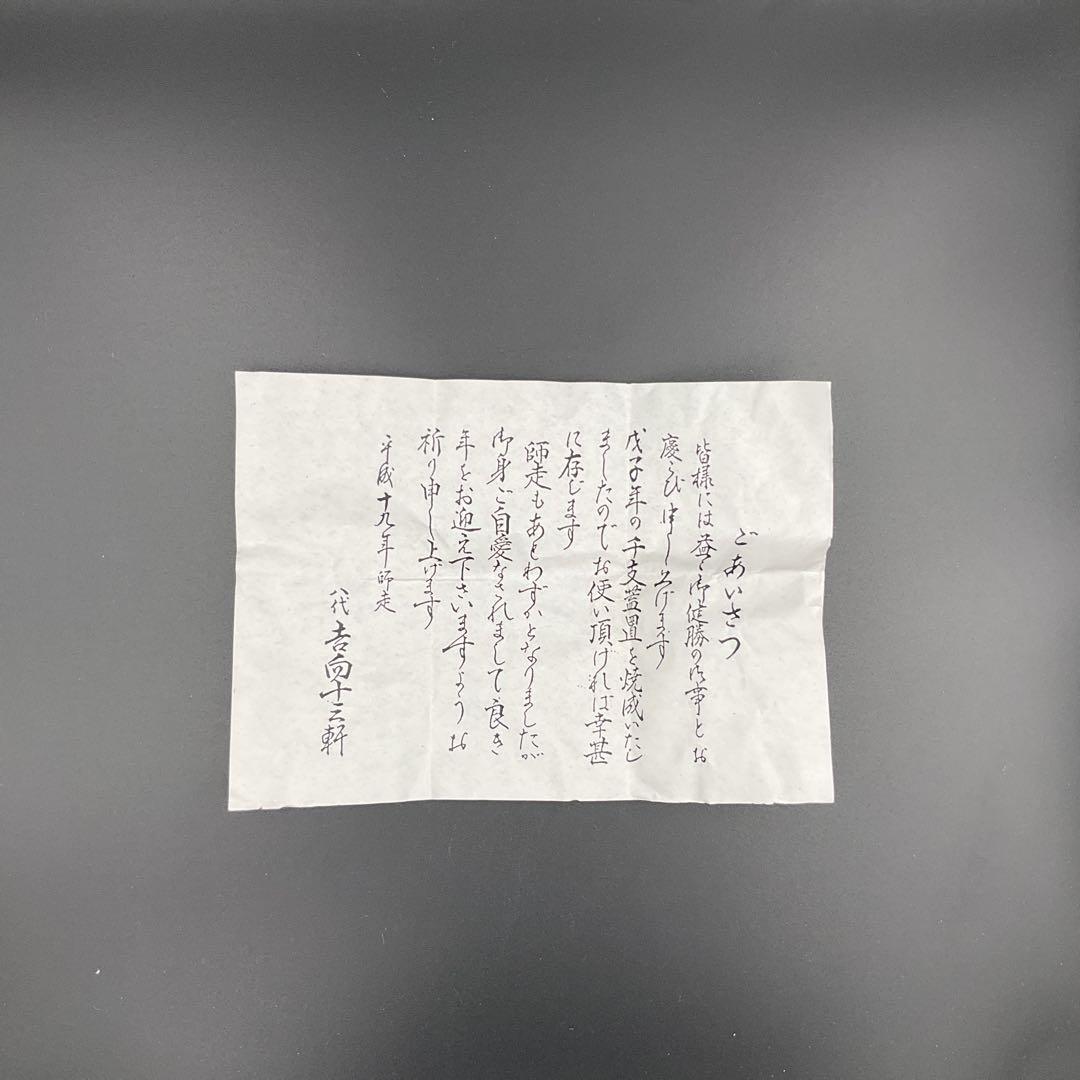 ごあいさつ
皆様には益々御健勝の御事とお
慶び申し上げます
戊子年の干支蓋置を焼成いたし
ましたのでお使い頂ければ幸甚
に存じます
師走もあとわずかとなりましたが
御身ご自愛なされまして良き
年をお迎え下さいますようお
祈り申し上げます
平成十九年師走
八代 吉向十三軒